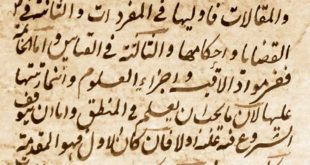 والمقالات فاوليها في المفردات والثانية في
القضايا واحكامها والثالثة في القياس واما الخاتمة
ففي مواد الاقيسة واجزاء العلوم وانما رتبتها
عليها لان ما يجب ان يعلم في المنطق اما ان يتوقف
الشروع فيه عليه اولا فان كان الاول فهو المقدمة